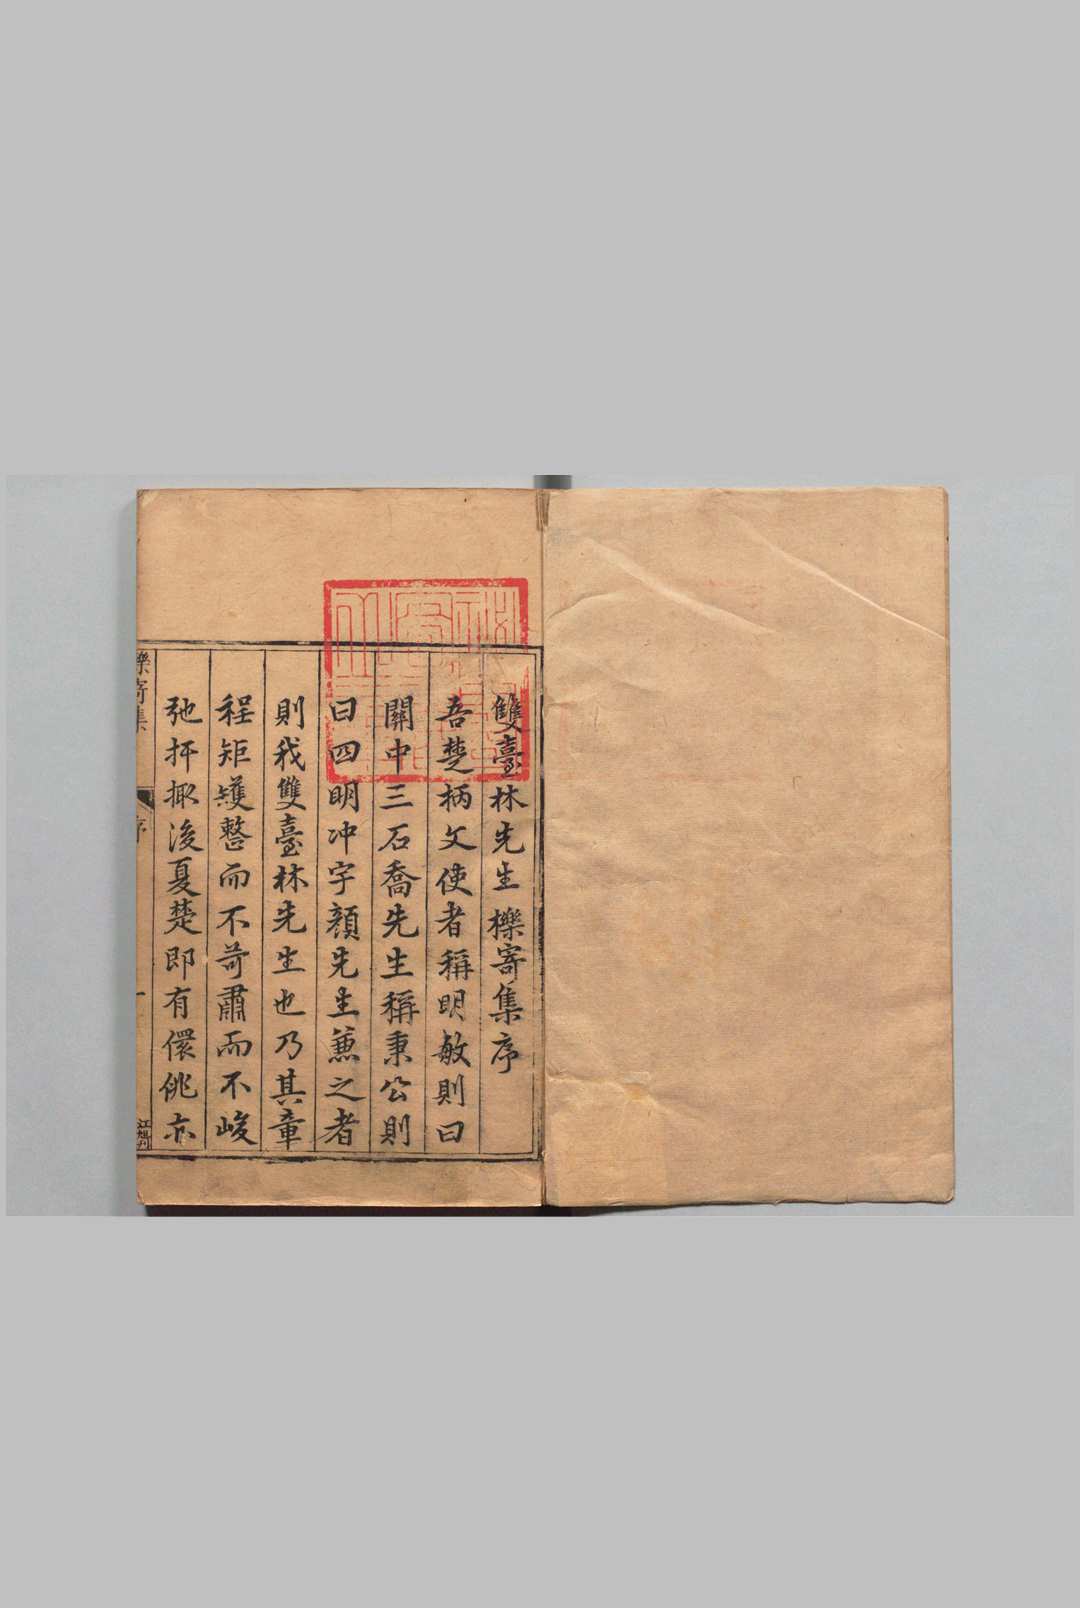 雙臺林先生櫟寄集序
吾楚柄文使者稱明敏則曰
關中三石喬先生稱秉公則
曰四明冲宇顏先生兼之者
則我雙臺林先生也乃其章
程矩矱整而不苛肅而不峻
弛扞掫後夏楚即有儇佻亦
櫟寄集
序
一